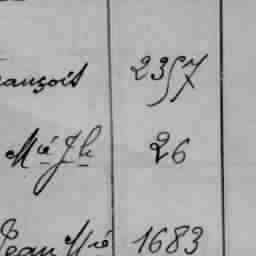 ançois 2357
Mie Jh 26
Jean Mie 1683